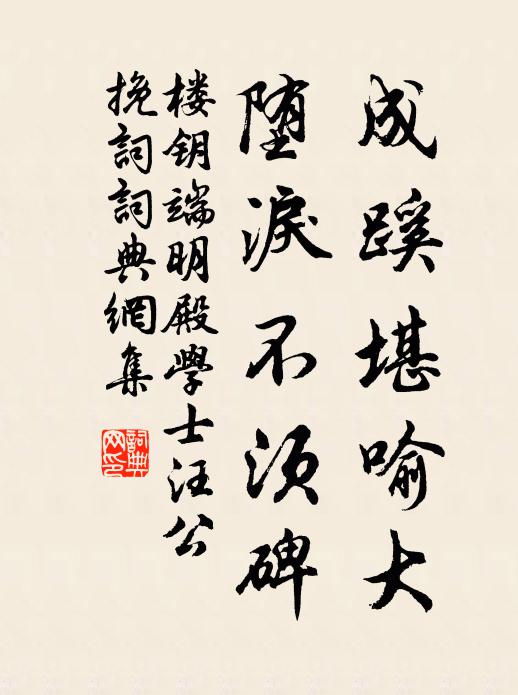 成蹊堪喻大
堕淚不须碑
楼钥端明殿學士汪公
挽詞詞典網集
詞典
网印